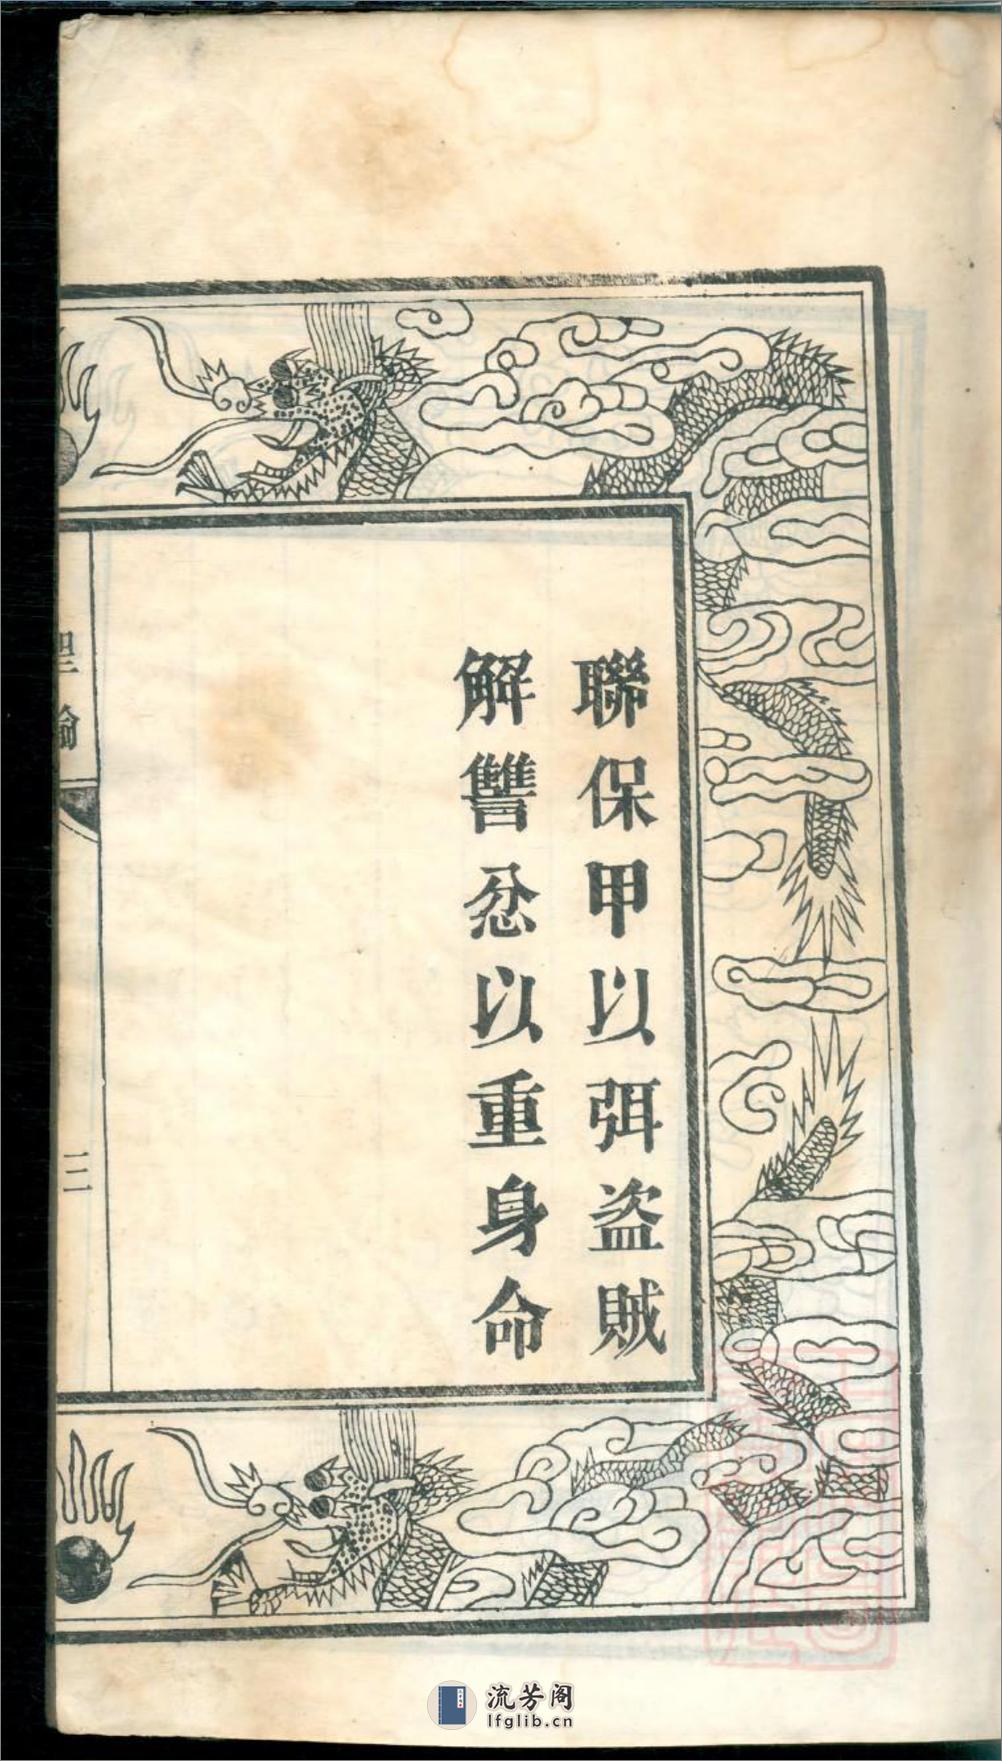 聯保甲以弭盜賊
解讐忿以重身命
聖諭
三
流芳阁
lfglib.cn